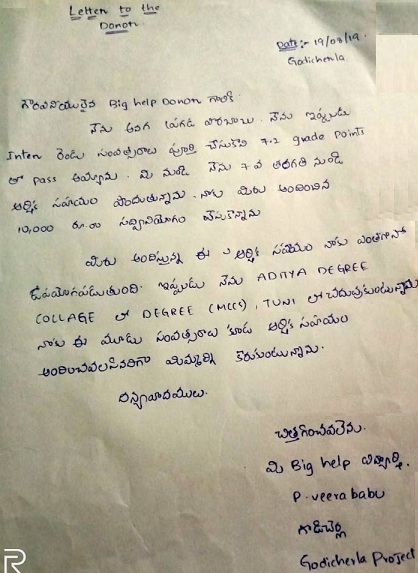 Letter to the
Donor.
Date:- 19/08/19.
Godicherla
గౌరవనీయులైన Big help Donor గారికి
నేను అనగ పంగిడి వీరబాబు. నేను ఇప్పుడు
Inter రెండు సంవత్సరాలు పూర్తి చేసుకొని 7.2 grade points
తో pass అయ్యాను. మీ నుండి నేను 7వ తరగతి నుండి
ఆర్థిక సహయం పొందుతున్నాను. నాకు మీరు అందించిన
10,000 రూ.లు సద్వినియోగం చేసుకొన్నాను
మీరు అందిస్తున్న ఈ ఆర్థిక సహయం నాకు ఎంతగానో
ఉపయోగపడుతుంది. ఇప్పుడు నేను ADITYA DEGREE
COLLAGE లో DEGREE (MCCS), TUNI లో చదువుకుంటున్నాను
నాకు ఈ మూడు సంవత్సరాలు కూడ ఆర్థిక సహయం
అందించవలసినదిగా మిమ్మల్ని కోరుకుంటున్నాను.
ధన్యవాదములు.
చిత్తగించవలెను.
మీ Big help విద్యార్థి.
P. veera babu
గొడిచెర్ల
Godicherla Project